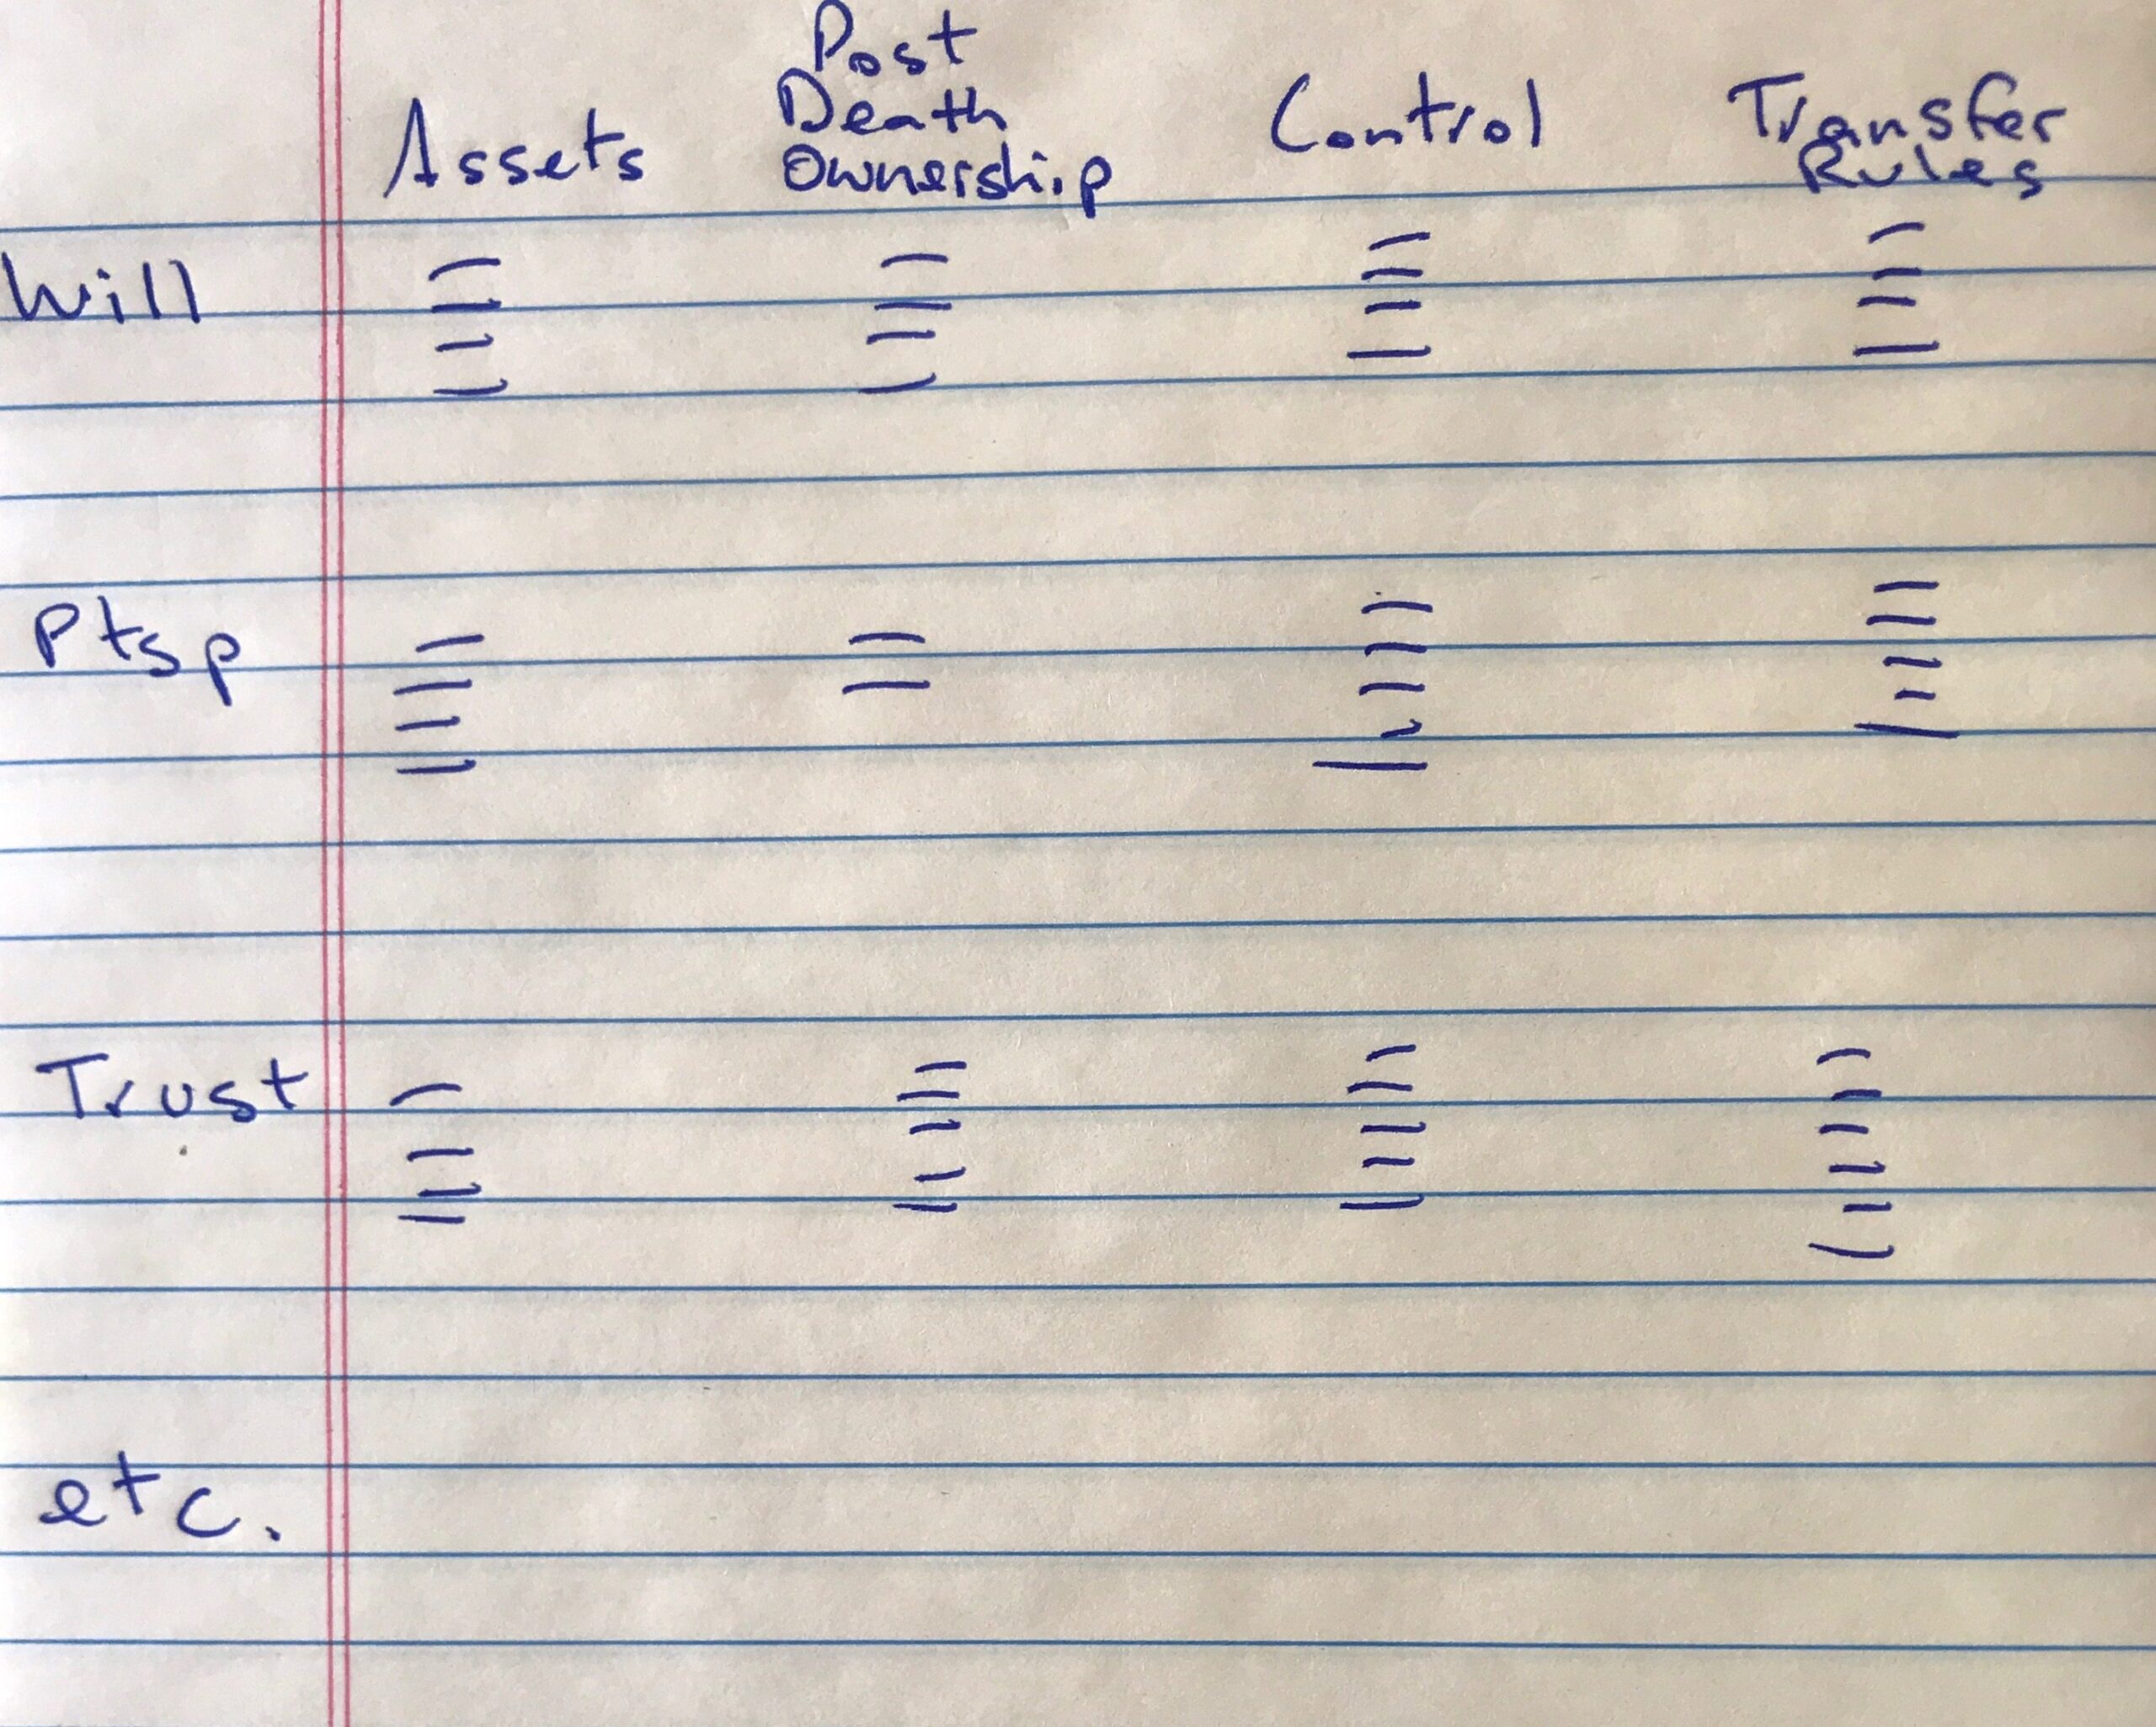 Assets Post Death Ownership Control Transfer Rules
Will
Ptsp
Trust
etc.